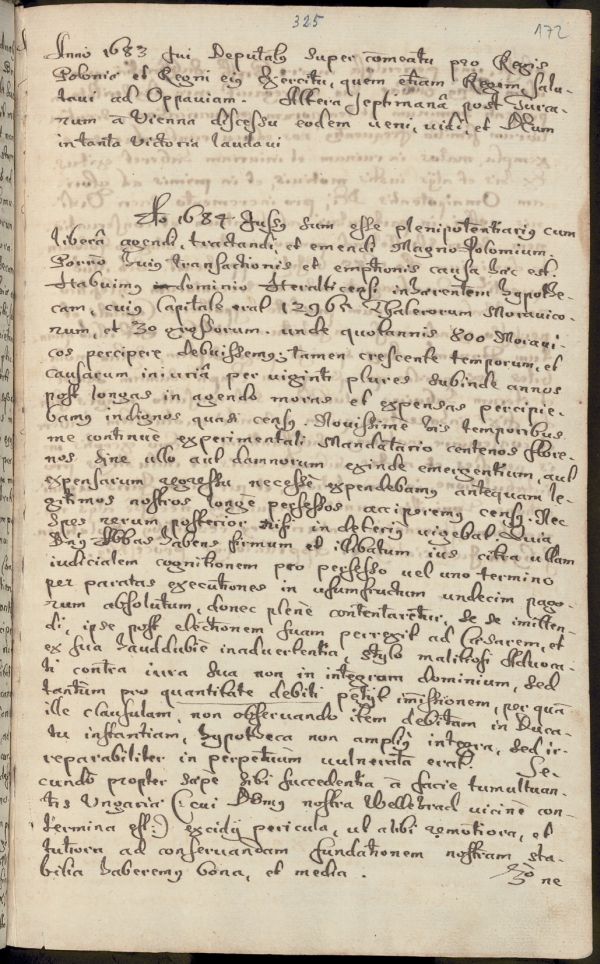 325
172
Anno 1683 fui Deputatus super comeatu pro Regis
Poloniae et Regni eius Exercitu, quem etiam Regem salu-
tavi ad Oppaviam. Altera septimana post Turca-
rum a Vienna discessu eodem veni, vidi, et Deum
in tanta victoria laudavi
Ao 1684 Jussus sum esse plenipotentiarius cum
libera agendi, tractandi, et emendi Magno Polomium.
Porro huius transactionis et emptionis causa haec est.
Habuimus in dominio inhaerentem hypothe-
cam, cuius Capitale erat 12965 Thalerorum Moravico-
rum, et 30 grossorum. unde quotannis 800 Moravi-
cos percipere debuissemus, tamen crescente temporum, et
causarum iniuria per viginti plures subinde annos
post longas in agendo moras et expensas percipie-
bamus indignos quasi census. Novissime his temporibus
me continue experimentali Mandatario centenos flore-
nos sine ullo aut damnorum exinde emergentium, aut
expensarum regressu necesse expendebamus antequam le-
gitimos nostros longe perfessos acciperemus census. Nec
spes rerum posterior nisi in deterius vigebat. Quia
Dnus Abbas habens firmum et illibatum ius citra ullam
iudicialem cognitionem pro perfesso vel uno termino
per paratas executiones in usumfructum undecim pago-
rum absolutum, donec plene contentaretur, se se imitten-
di, ipse post electionem suam perrexit ad Caesarem, et
ex sua hauddubie inadvertentia, stylo malitiosi Advoca-
ti contra iura sua non in integrum dominium, sed
tantum pro quantitate debiti petyt imissionem, per quam
ille clausulam, non observando item debitam in Duca-
tu instantiam, hypotheca non amplius integra, sed ir-
reparabiliter in perpetuum vulnerata erat. Se-
cundo propter saepe sibi succedentia a facie tumultuan-
tis Ungariae (: cui Domus nostra Wellehrad vicine con-
termina est :) excidy pericula, ut alibi remotiora, et
tutiora ad conservandam fundationem nostram sta-
bilia haberemus bona, et media.
3o ne